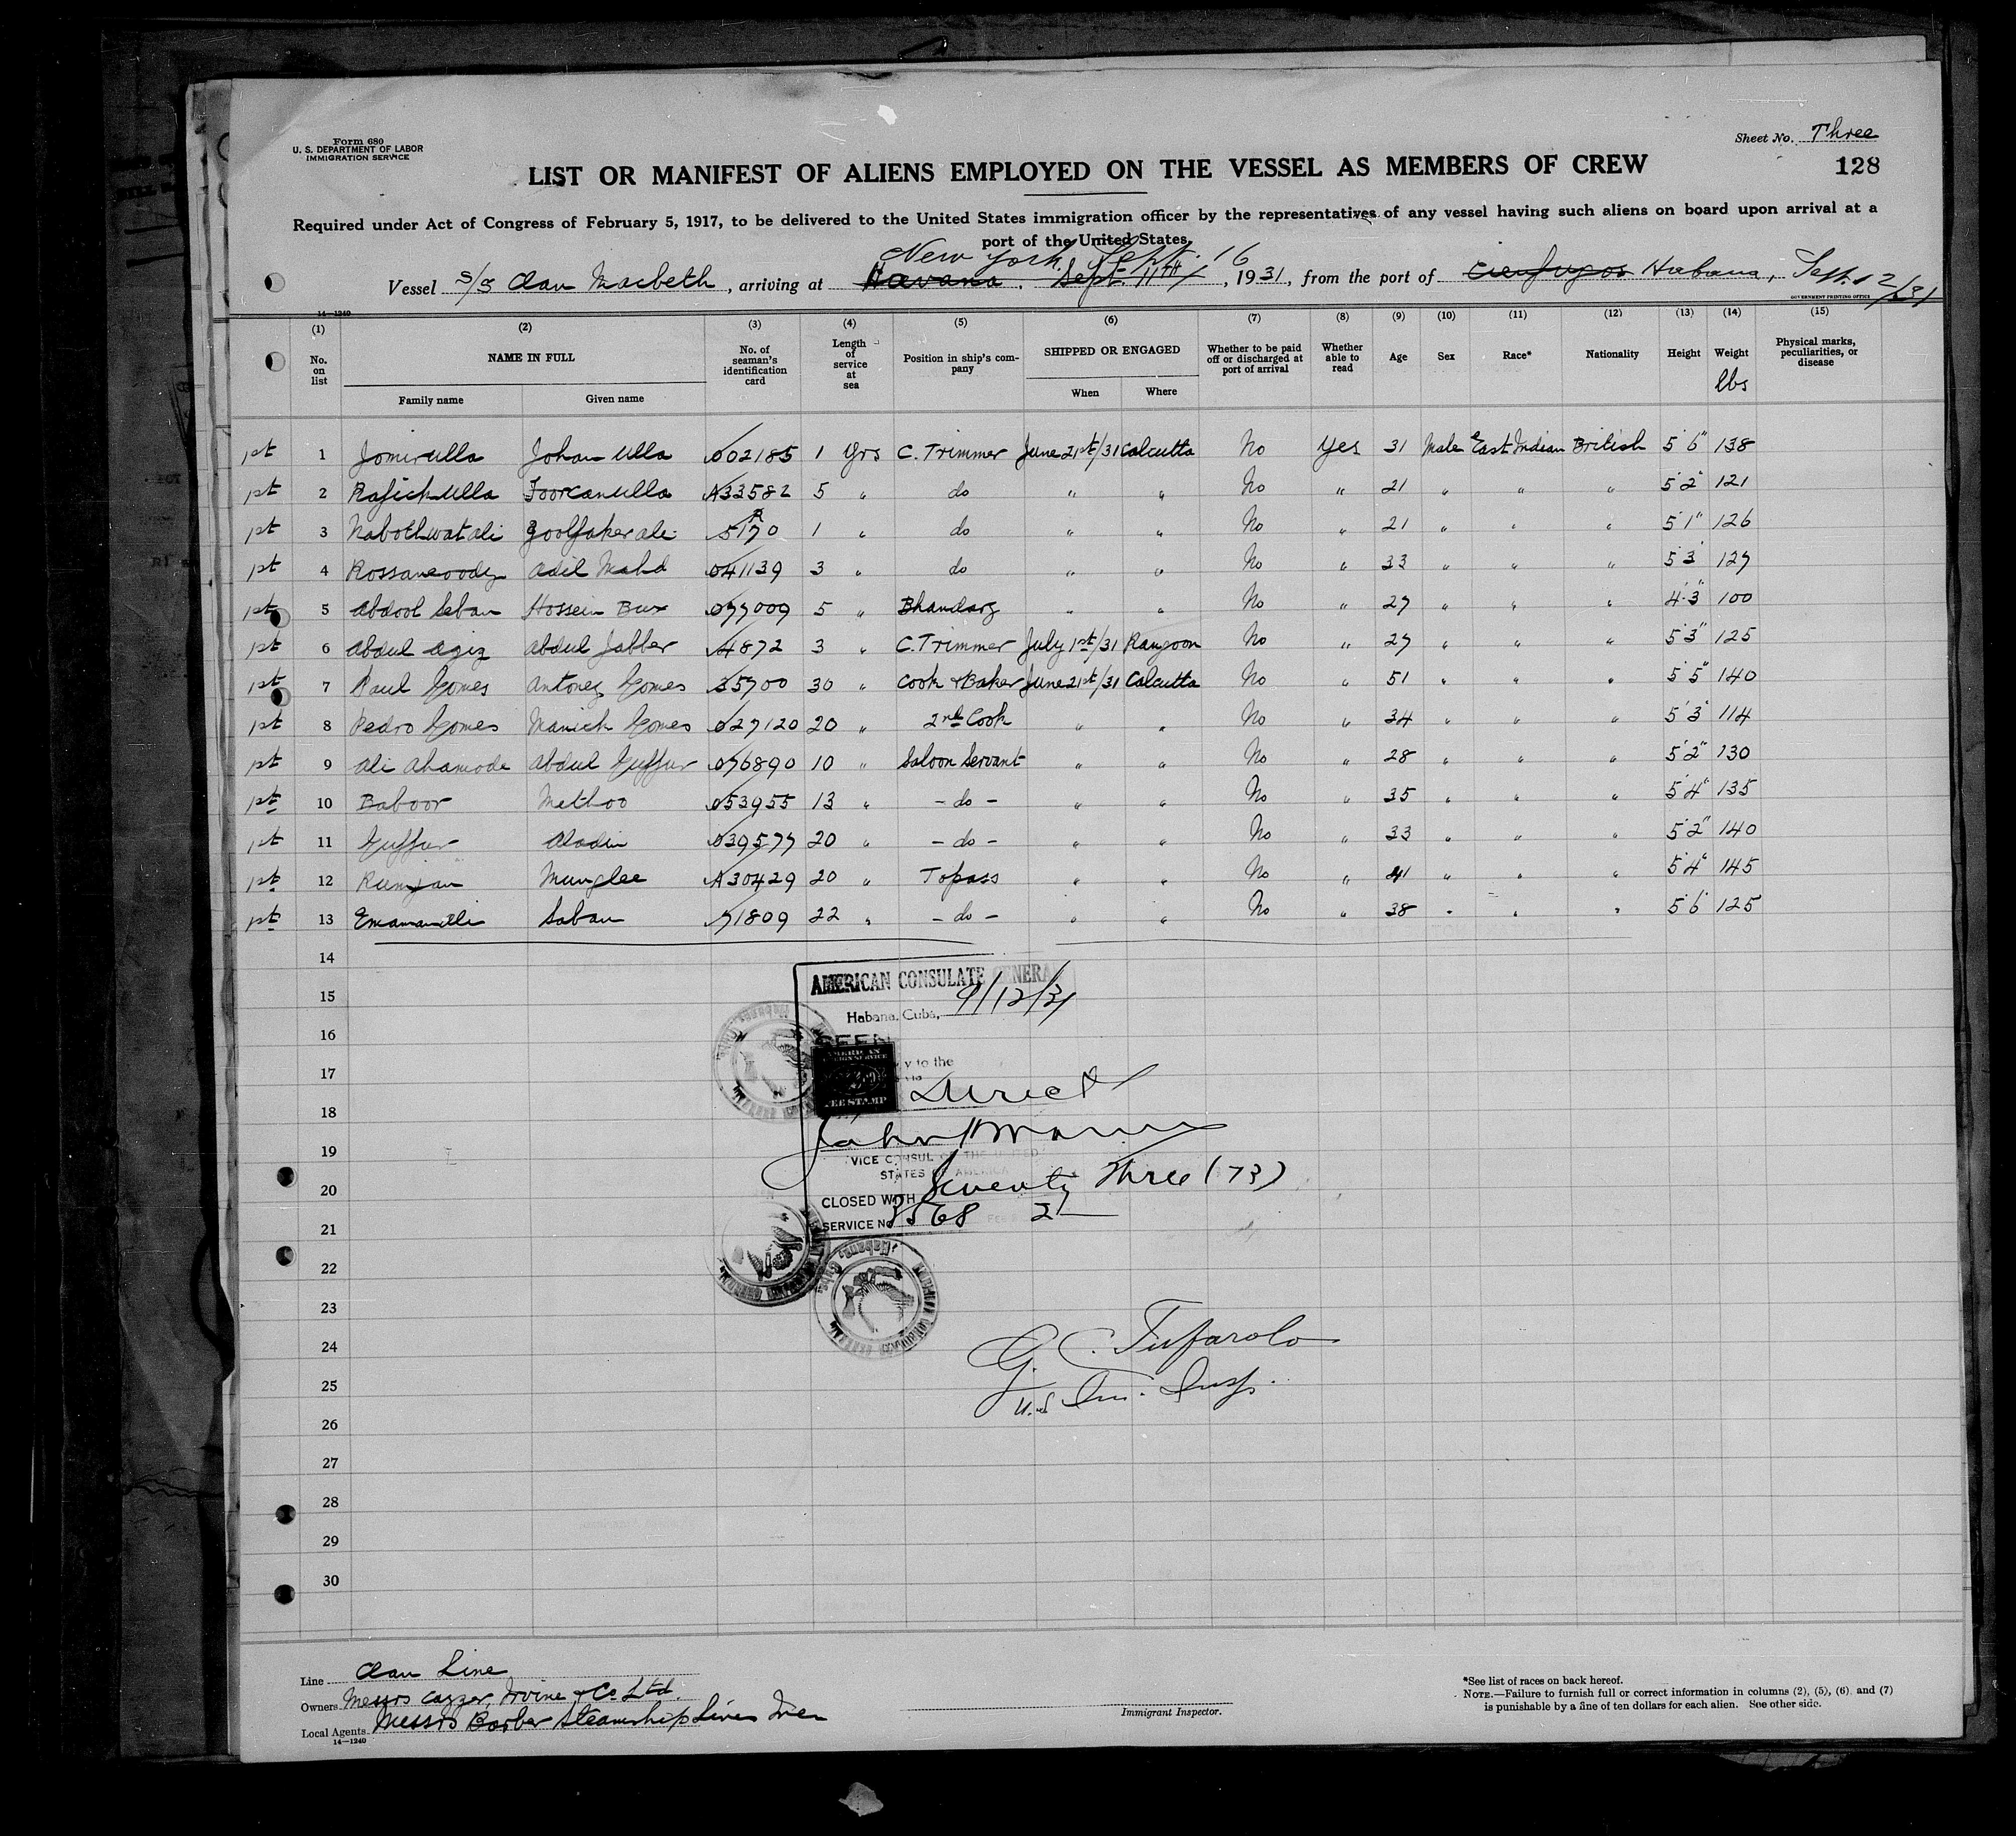 Form 680
U. S. DEPARTMENT OF LABOR
IMMIGRATION SERVICE
Sheet No. Three
128
LIST OR MANIFEST OF ALIENS EMPLOYED ON THE VESSEL AS MEMBERS OF CREW
Required under Act of Congress of February 5, 1917, to be delivered to the United States immigration officer by the representatives of any vessel having such aliens on board upon arrival at a
port of the United States
New York, Sept. 16
Vessel S/S Clan Macbeth, arriving at Havana, Sept. 11th, 1931, from the port of Cienfugos Habana, Sept. 12/31
GOVERNMENT PRINTING OFFICE
14—1240
(1) (2) (3) (4) (5) (6) (7) (8) (9) (10) (11) (12) (13) (14) (15)
No. on list NAME IN FULL No. of seaman's identification card Length of service at sea Position in ship's company SHIPPED OR ENGAGED Whether to be paid off or discharged at port of arrival Whether able to read Age Sex Race* Nationality Height Weight lbs Physical marks, peculiarities, or disease
Family name Given name When Where
1st 1 Jomirulla Johan Ulla 002185 1 yrs C. Trimmer June 21st/31 Calcutta No Yes 31 Male East Indian British 5'6" 138
1st 2 Rafickulla Foorcanulla A33582 5 " do " " No " 21 " " " 5'2" 121
1st 3 Nabothwatali Goolfaker ali R 5170 1 " do " " No " 21 " " " 5'1" 126
1st 4 Rossaneoody Adil Mahd 041139 3 " do " " No " 33 " " " 5'3 127
1st 5 Abdool Seban Hossein Bux 077009 5 " Bhandary " " No " 27 " " " 4'3" 100
1st 6 Abdul Aziz Abdul Jabber 4872 3 " C. Trimmer July 1st/31 Rangoon No " 27 " " " 5'3" 125
1st 7 Paul Gomes Antoney Gomes 35700 30 " Cook & Baker June 21st/31 Calcutta No " 51 " " " 5'5" 140
1st 8 Pedro Gomes Manick Gomes 027120 20 " 2nd Cook " " No " 34 " " " 5'3" 114
1st 9 Ali Ahamode Abdul Guffur 076890 10 " Saloon Servant " " No " 28 " " " 5'2" 130
1st 10 Baboor Methoo 053955 13 " - do - " " No " 35 " " " 5'4" 135
1st 11 Guffur Aladin 039577 20 " - do - " " No " 33 " " " 5'2" 140
1st 12 Ramjan Munglee A30429 20 " Topass " " No " 41 " " " 5'4" 145
1st 13 Emamanalli Saban 71809 22 " - do - " " No " 38 " " " 5'6 125
14
15
16
17
18
19
20
21
22
23
24
25
26
27
28
29
30
AMERICAN CONSULATE GENERAL
Habana, Cuba, 9/12/31
SEEN
y to the
AMERICAN
FOREIGN SERVICE
FEE STAMP
Direct
VICE CONSUL OF THE UNITED
STATES OF AMERICA
CLOSED WITH Seventy Three (73)
SERVICE No 3568 2
G. C. Tufarolo
U.S. Im. Insp.
Line Clan Line
Owners Messrs Cayzer, Irvine & Co Ltd.
Local Agents Messrs Barber Steamship Lines Inc
14—1240
Immigrant Inspector.
*See list of races on back hereof.
NOTE.—Failure to furnish full or correct information in columns (2), (5), (6) and (7)
is punishable by a fine of ten dollars for each alien. See other side.